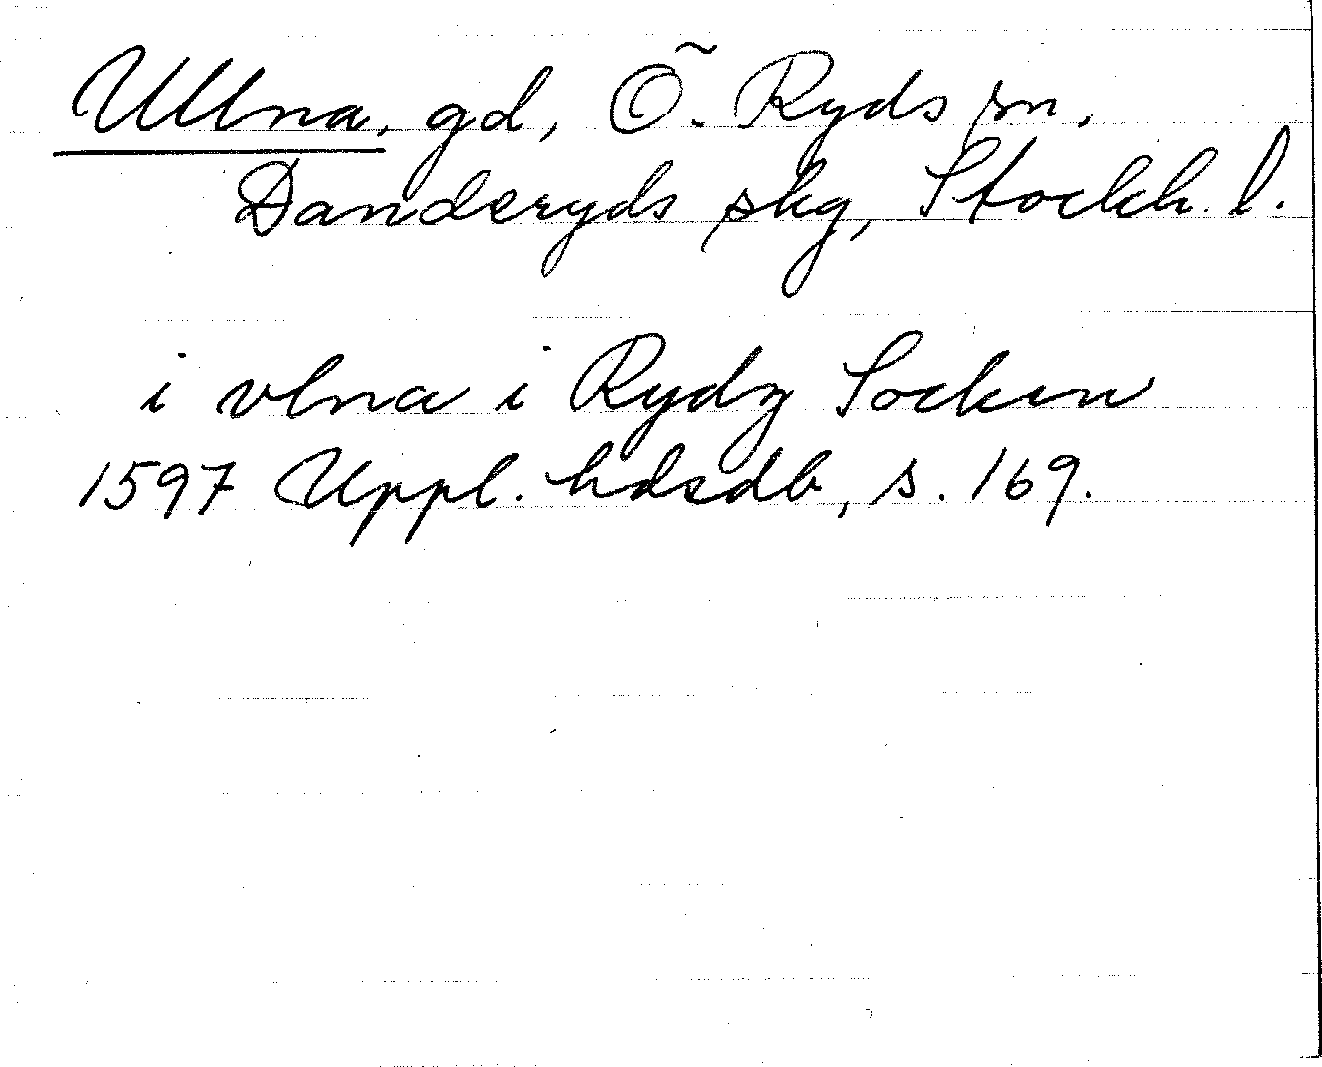 Ullna, gd, Ö. Ryds sn,
Danderyds skg, Stockh. l.
i vlna i Rydz Socken
1597 Uppl. hdsdb, s. 169.